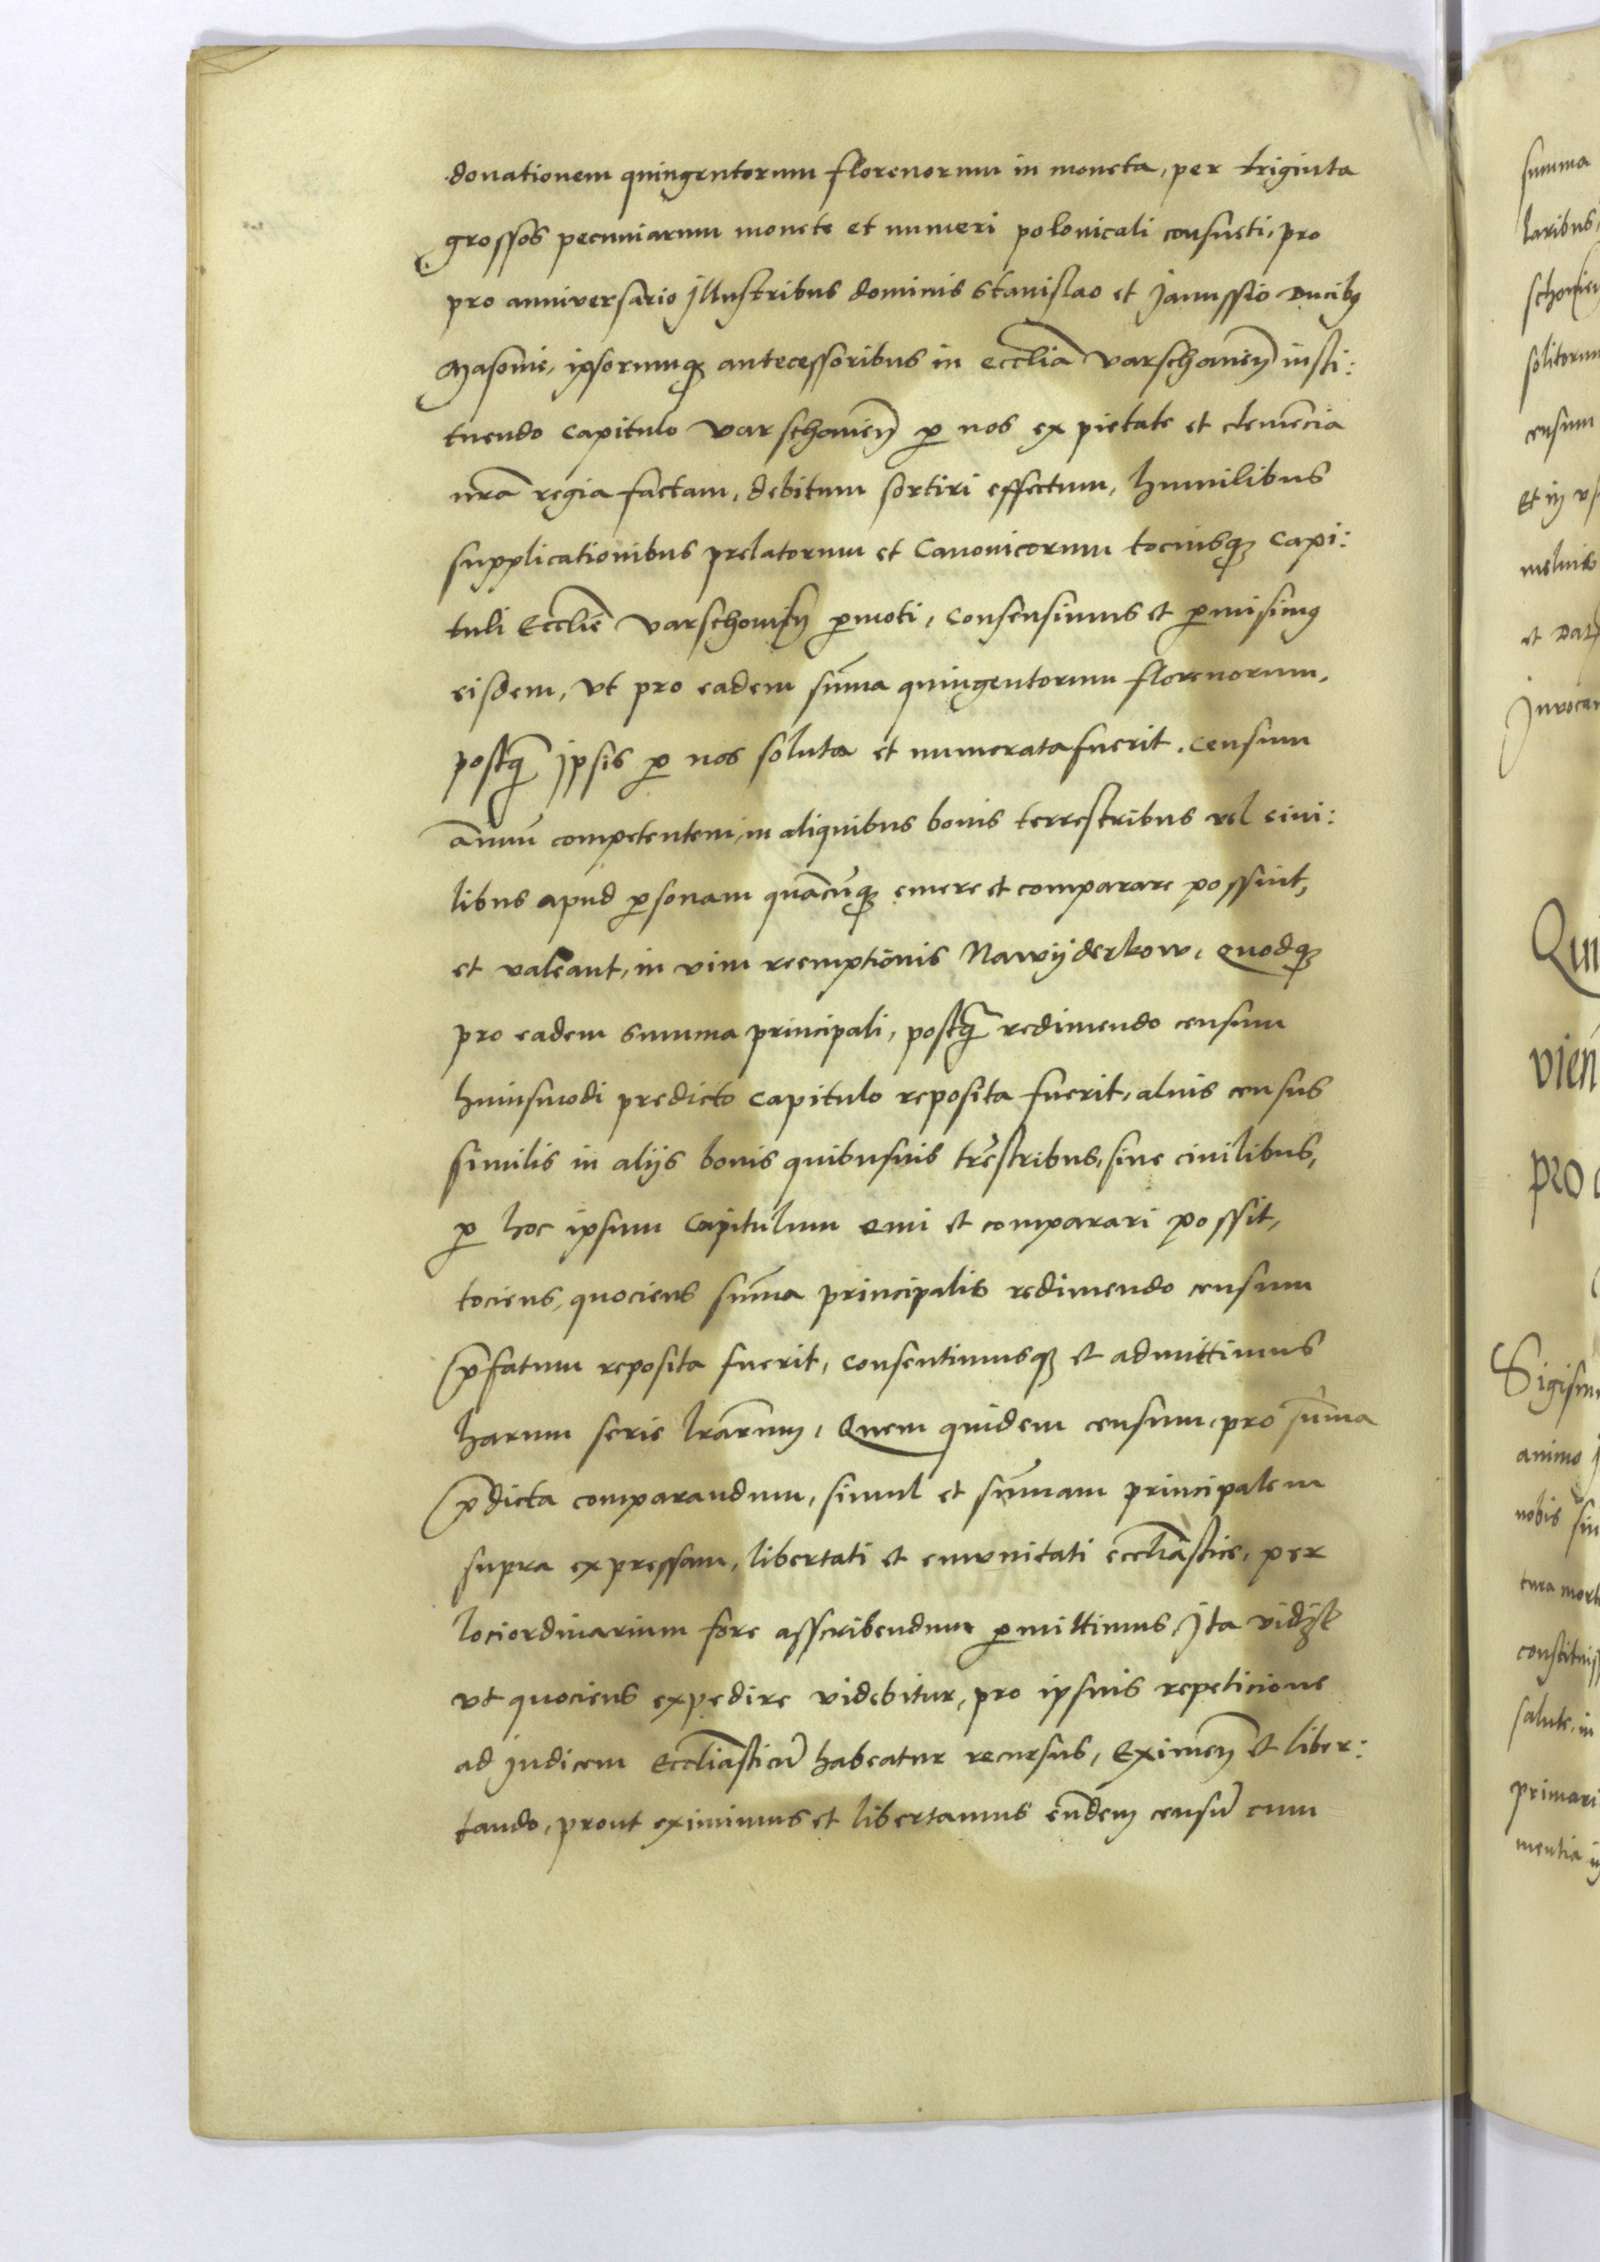 donationem quingentorum florenorum in moneta, per triginta
grossos pecuniarum monete et numeri polonicali consueti, pro
pro anniversario Illustribus dominis Stanislao et Janussio Ducibus
Masovie, ipsorumque antecessoribus in ecclia varschovien insti:
tuendo Capitulo varschovien p nos ex pietate et clemencia
nra regia factam, debitum sortiri effectum, humilibus
supplicationibus prelatorum et Canonicorum tociusque Capi:
tuli Ecclie varschovien pmoti, Consensimus et pmisimus
eisdem, vt pro eadem suma quingentorum florenorum,
postq Ipsis p nos soluta et numerata fuerit, Censum
annuu competentem, in aliquibus bonis terrestribus vel civi:
libus apud psonam quacuque emere et comparare possint,
et valeant, in vim reemptionis Nawyderkow, Quodque
pro eadem summa principali, postq redimendo censum
huiusmodi predicto Capitulo reposita fuerit, alius census
similis in alijs bonis quibusuis trestribus, siue ciuilibus,
p hoc ipsum Capitulum emi et comparari possit,
tociens, quociens suma principalis redimendo censum
pfatum reposita fuerit, Consentimusque et admittimus
harum serie lrarum, Quem quidem censum, pro suma
pdicta comparandum, simul et sumam principalem
supra expressam, libertati et emunitati eccliastice, per
lociordinarium fore asscribendum pmittimus, Ita vidz
vt quociens expedire videbitur, pro ipsius repeticione
ad Judicem Eccliasticu habeatur recursus, Eximen et liber:
tando, prout eximimus et libertamus eundem censu cum
summa
laribus,
solitorum
censum
et
Qui
vien
pro
Sigism
animo
nobis
salute, in
primari